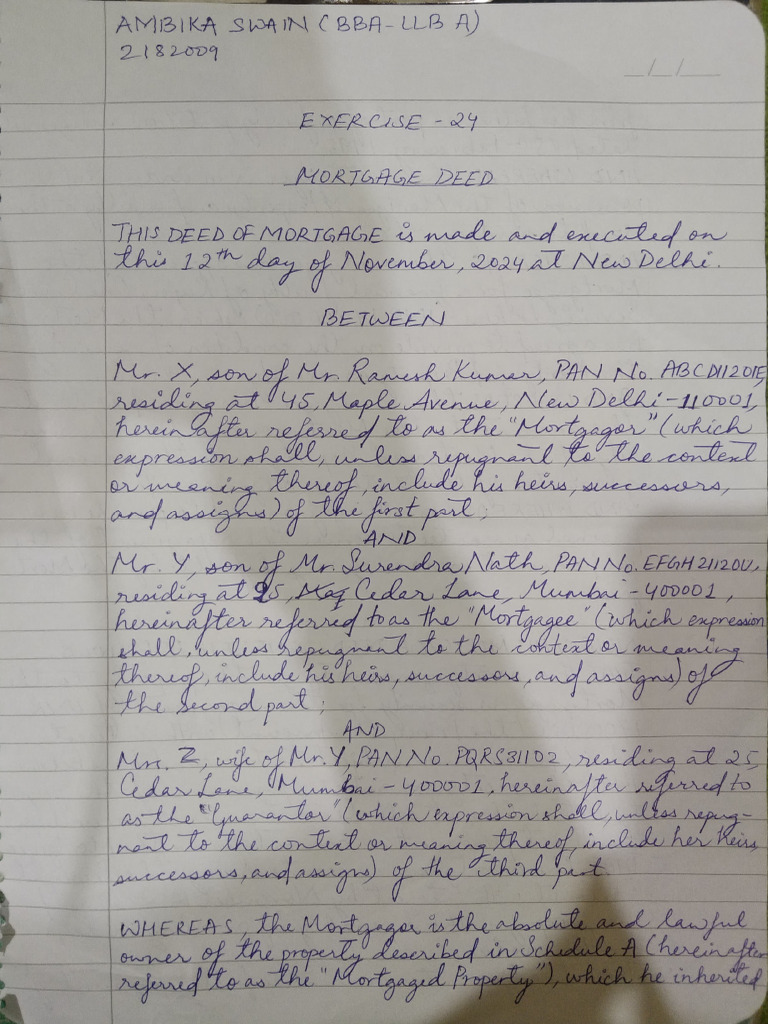 AMBIKA SWAIN (BBA-LLB A)
2182009
EXERCISE - 24
MORTGAGE DEED
THIS DEED OF MORTGAGE is made and executed on
this 12th day of November, 2024 at New Delhi.
BETWEEN
Mr. X, son of Mr. Ramesh Kumar, PAN No. ABCD11201E,
residing at 45, Maple Avenue, New Delhi-110001,
hereinafter referred to as the "Mortgagor" (which
expression shall, unless repugnant to the context
or meaning thereof, include his heirs, successors,
and assigns) of the first part;
AND
Mr. Y, son of Mr. Surendra Nath, PAN No. EFGH21120U,
residing at 25, Cedar Lane, Mumbai - 400001,
hereinafter referred to as the "Mortgagee" (which expression
shall, unless repugnant to the context or meaning
thereof, include his heirs, successors, and assigns) of
the second part;
AND
Mrs. Z, wife of Mr. Y, PAN No. PQRS31102, residing at 25,
Cedar Lane, Mumbai - 400001, hereinafter referred to
as the "Guarantor" (which expression shall, unless repug-
nant to the context or meaning thereof, include her heirs,
successors, and assigns) of the third part.
WHEREAS, the Mortgagor is the absolute and lawful
owner of the property described in Schedule A (hereinafter
referred to as the "Mortgaged Property"), which he inherited